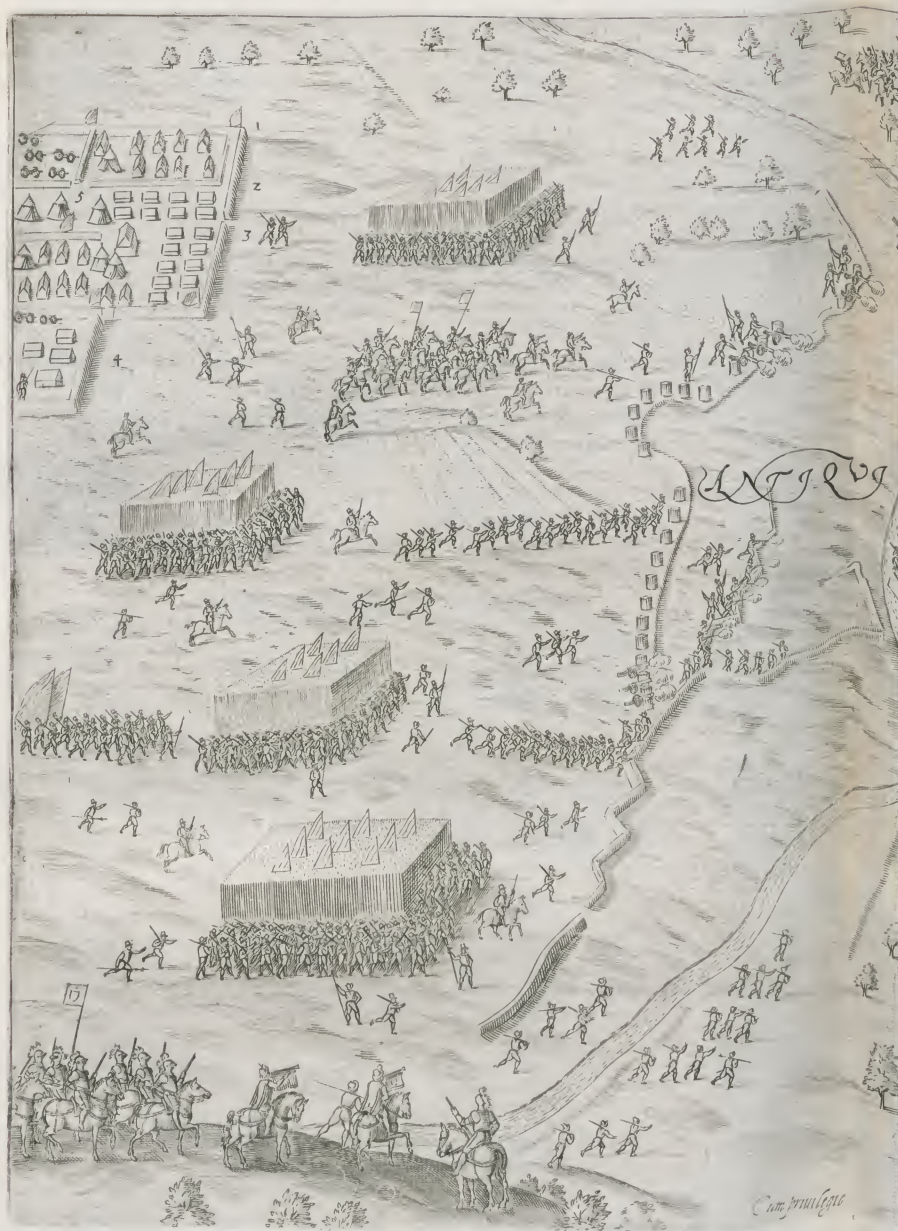 1
2
5
3
4
ANTIQVI
13
Cum priuilegie